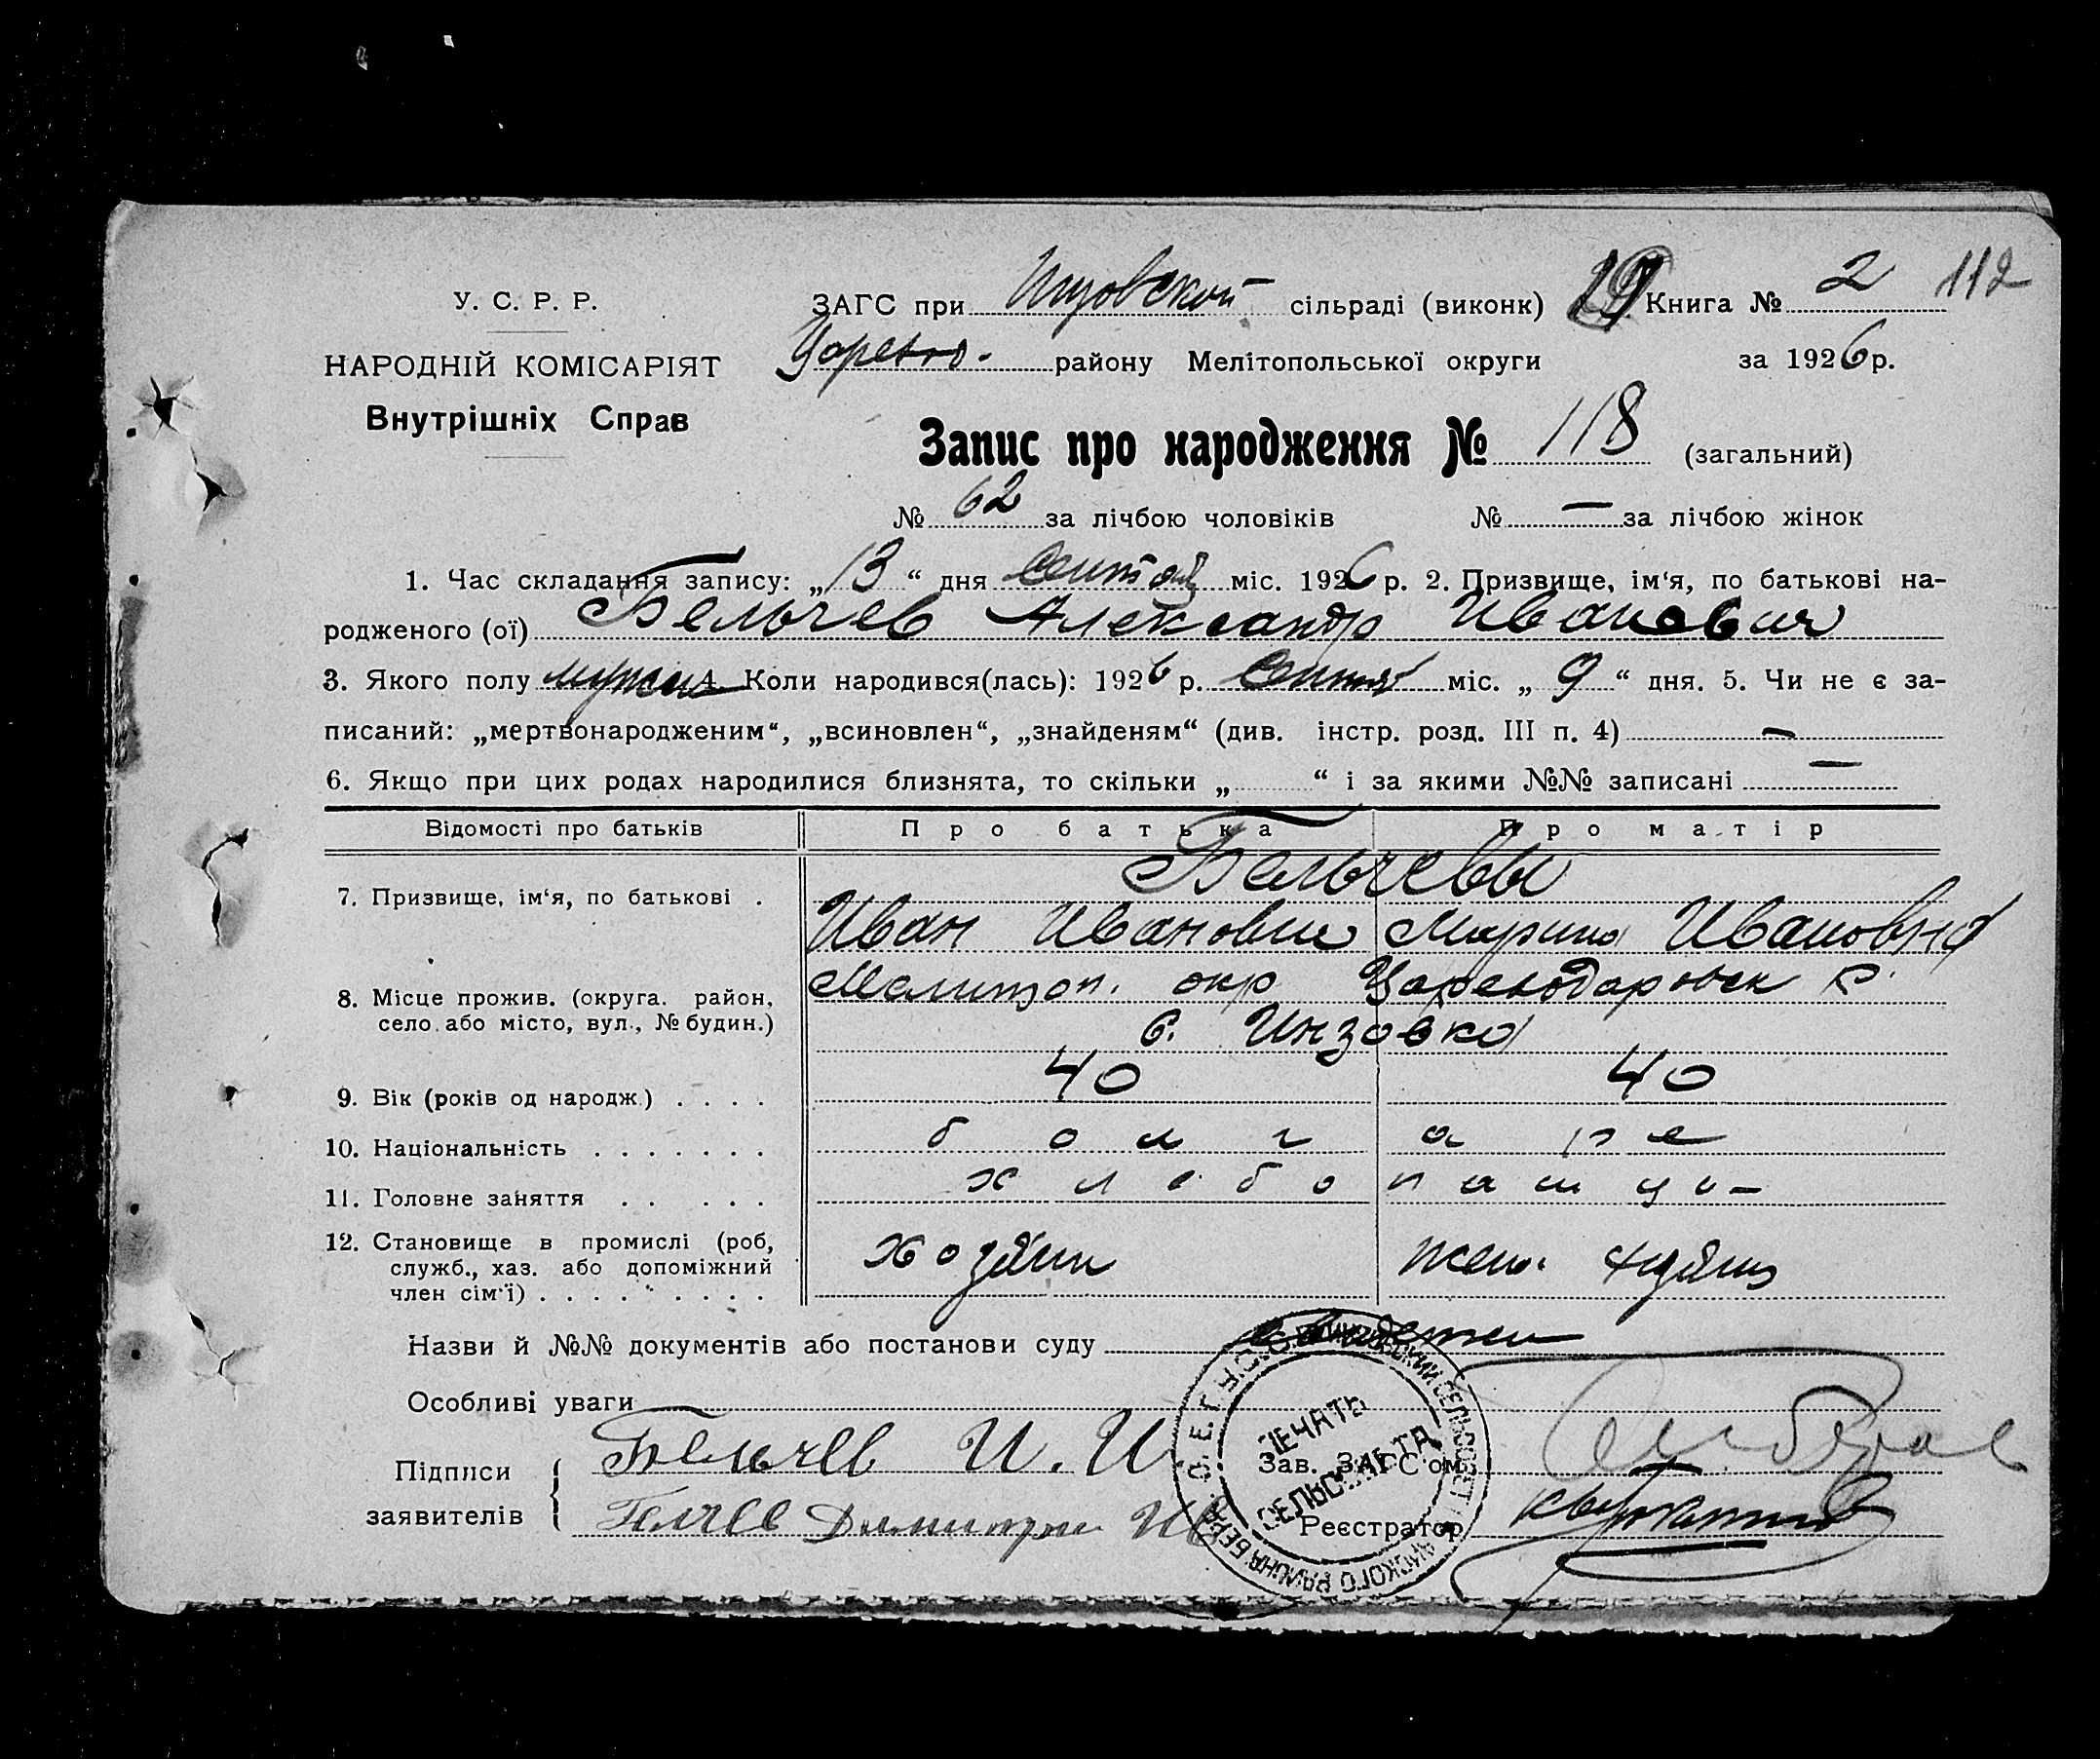 112
У. С. Р. Р.
НАРОДНІЙ КОМІСАРІЯТ
Внутрішніх Справ
ЗАГС при Инзовской сільраді (виконк) Книга № 2
Царево. району Мелітопольської округи за 1926 р.
Запис про народження № 118 (загальний)
№ 62 за лічбою чоловіків № — за лічбою жінок
1. Час складання запису: „13“ дня міс. 1926 р. 2. Призвище, ім‘я, по батькові на-
родженого (ої) Бельчев Александр Иванович
3. Якого полу 4. Коли народився(лась): 1926 р. міс. „9“ дня. 5. Чи не є за-
писаний: „мертвонародженим“, „всиновлен“, „знайденям“ (див. інстр. розд. III п. 4) —
6. Якщо при цих родах народилися близнята, то скільки „ “ і за якими №№ записані —
Відомості про батьків Про батька Про матір
Бельчевы
7. Призвище, ім‘я, по батькові . Иван Иванович Марина Ивановна
8. Місце прожив. (округа. район, село або місто, вул., № будин.) Мелитоп. окр Цареводаровск р.
с. Инзовка
9. Вік (років од народж.) . . . . 40 40
10. Національність . . . . . . . болгаре
11. Головне заняття . . . . . хлебопашцы
12. Становище в промислі (роб, служб., хаз. або допоміжний член сім‘ї) . . . . . . . . . хозяин жена хозяина
Назви й №№ документів або постанови суду
Особливі уваги
Підписи заявителів
Бельчев И. И
Белчев Димитри Ив
Зав. ЗАГС‘ом
Реєстратор
ПЕЧАТЬ
СЕЛЬСОВЕТА